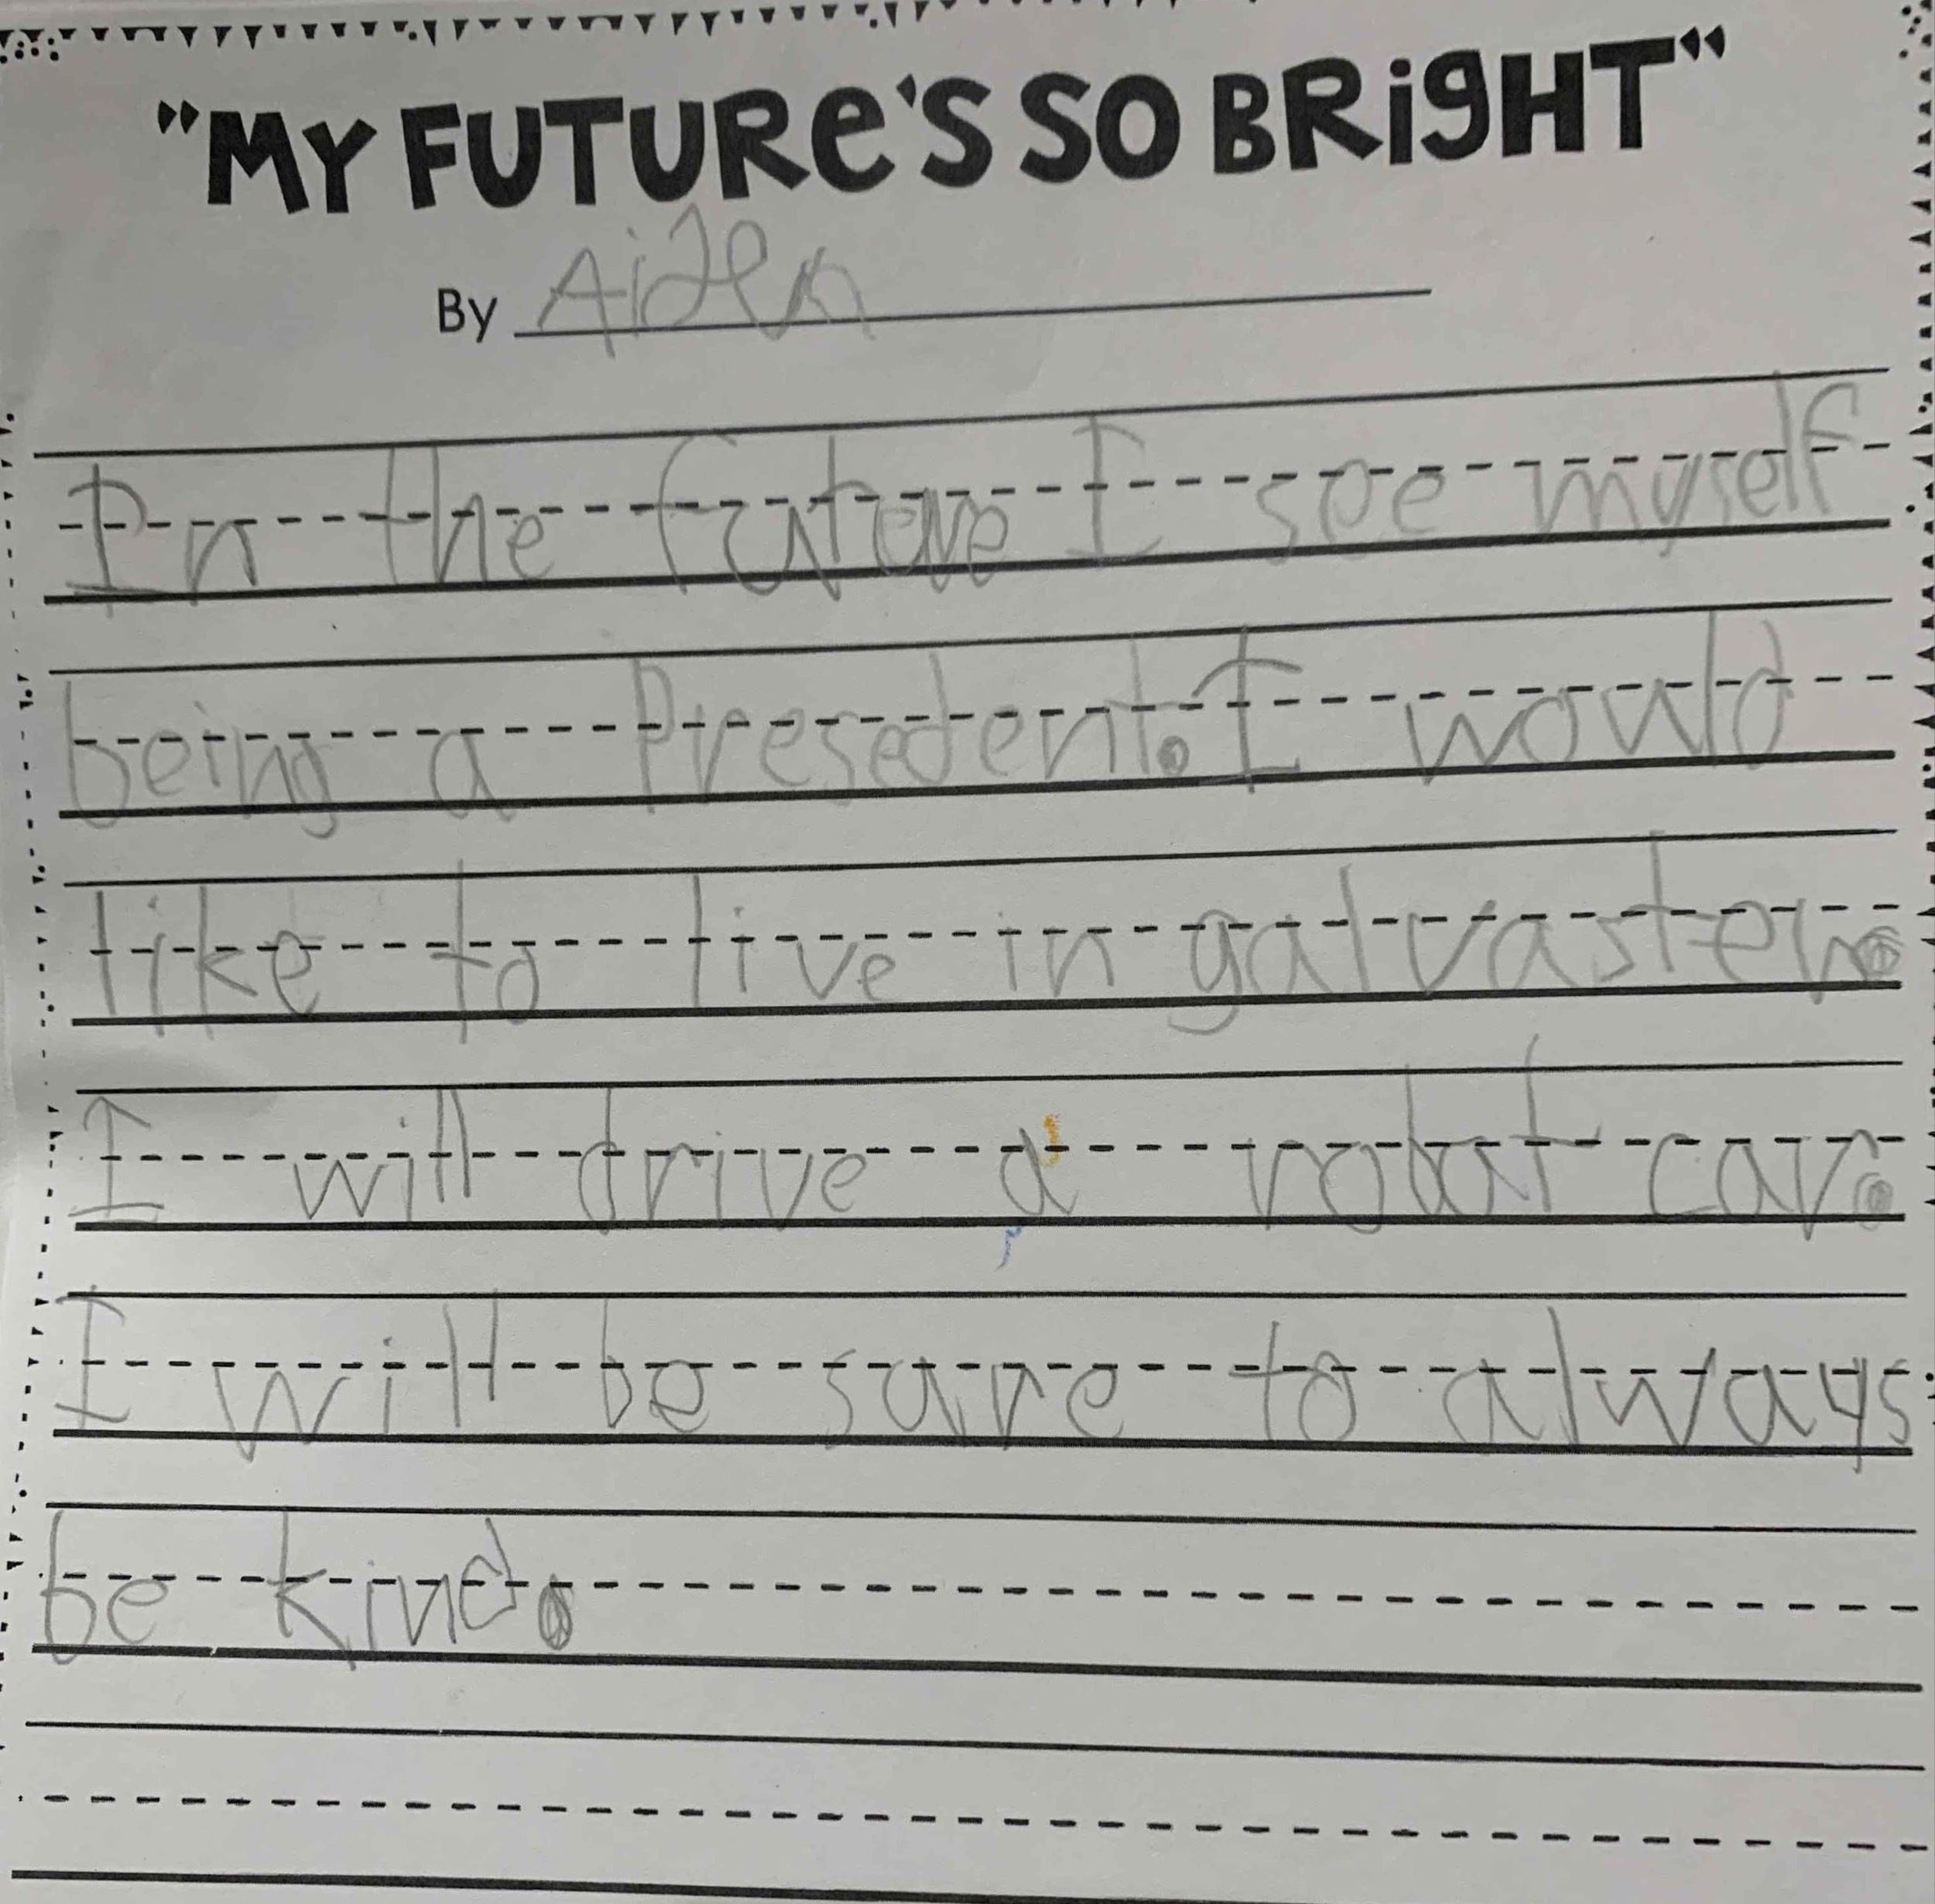 "MY FUTURe'S SO BRiGHT"
By Aiden
In the future I see myself
being a Presedent. I would
like to live in galvasten.
I will drive a robot car.
I will be sure to always
be kind.